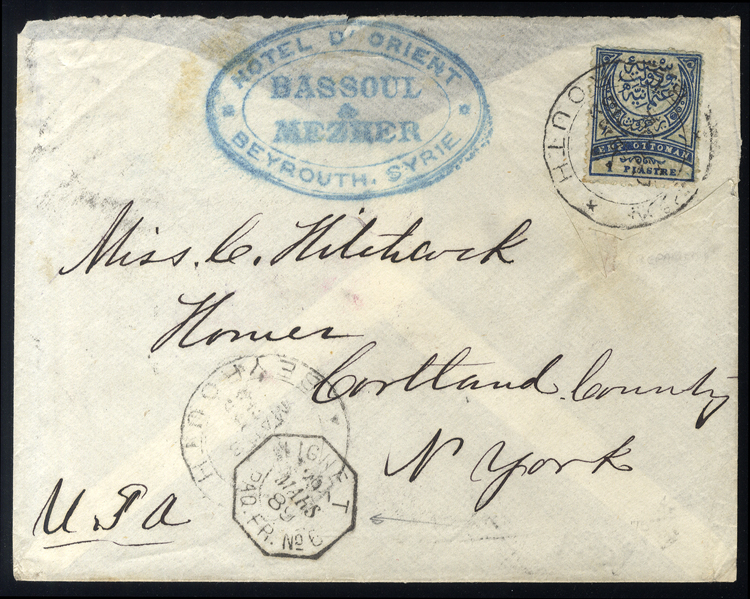 HOTEL D'ORIENT
BASSOUL
&
MEZHER
BEYROUTH, SYRIE
OTTOMAN
1 PIASTRE
Miss. C. Hitchcock
Homer
Cortland County
N York
U.S.A
BEYROUTH
LIGNE T
MARS
89
PAQ. FR. No 6